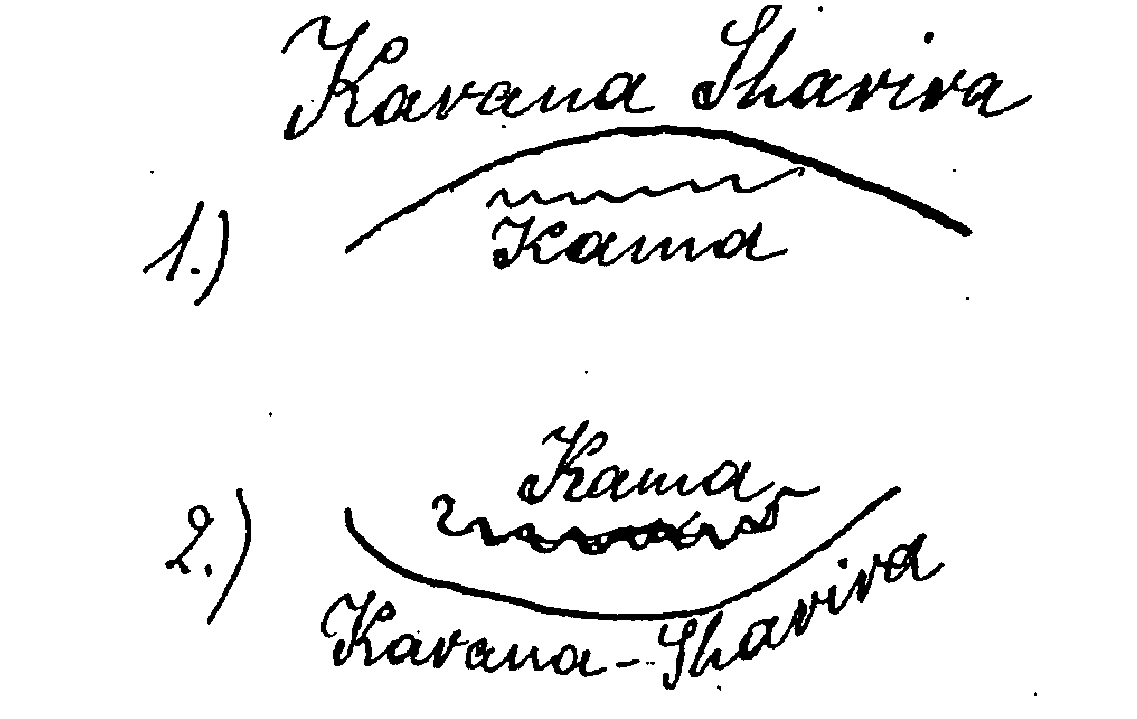 Karana Sharira
1.)
Kama
2.)
Kama
Karana-Sharira